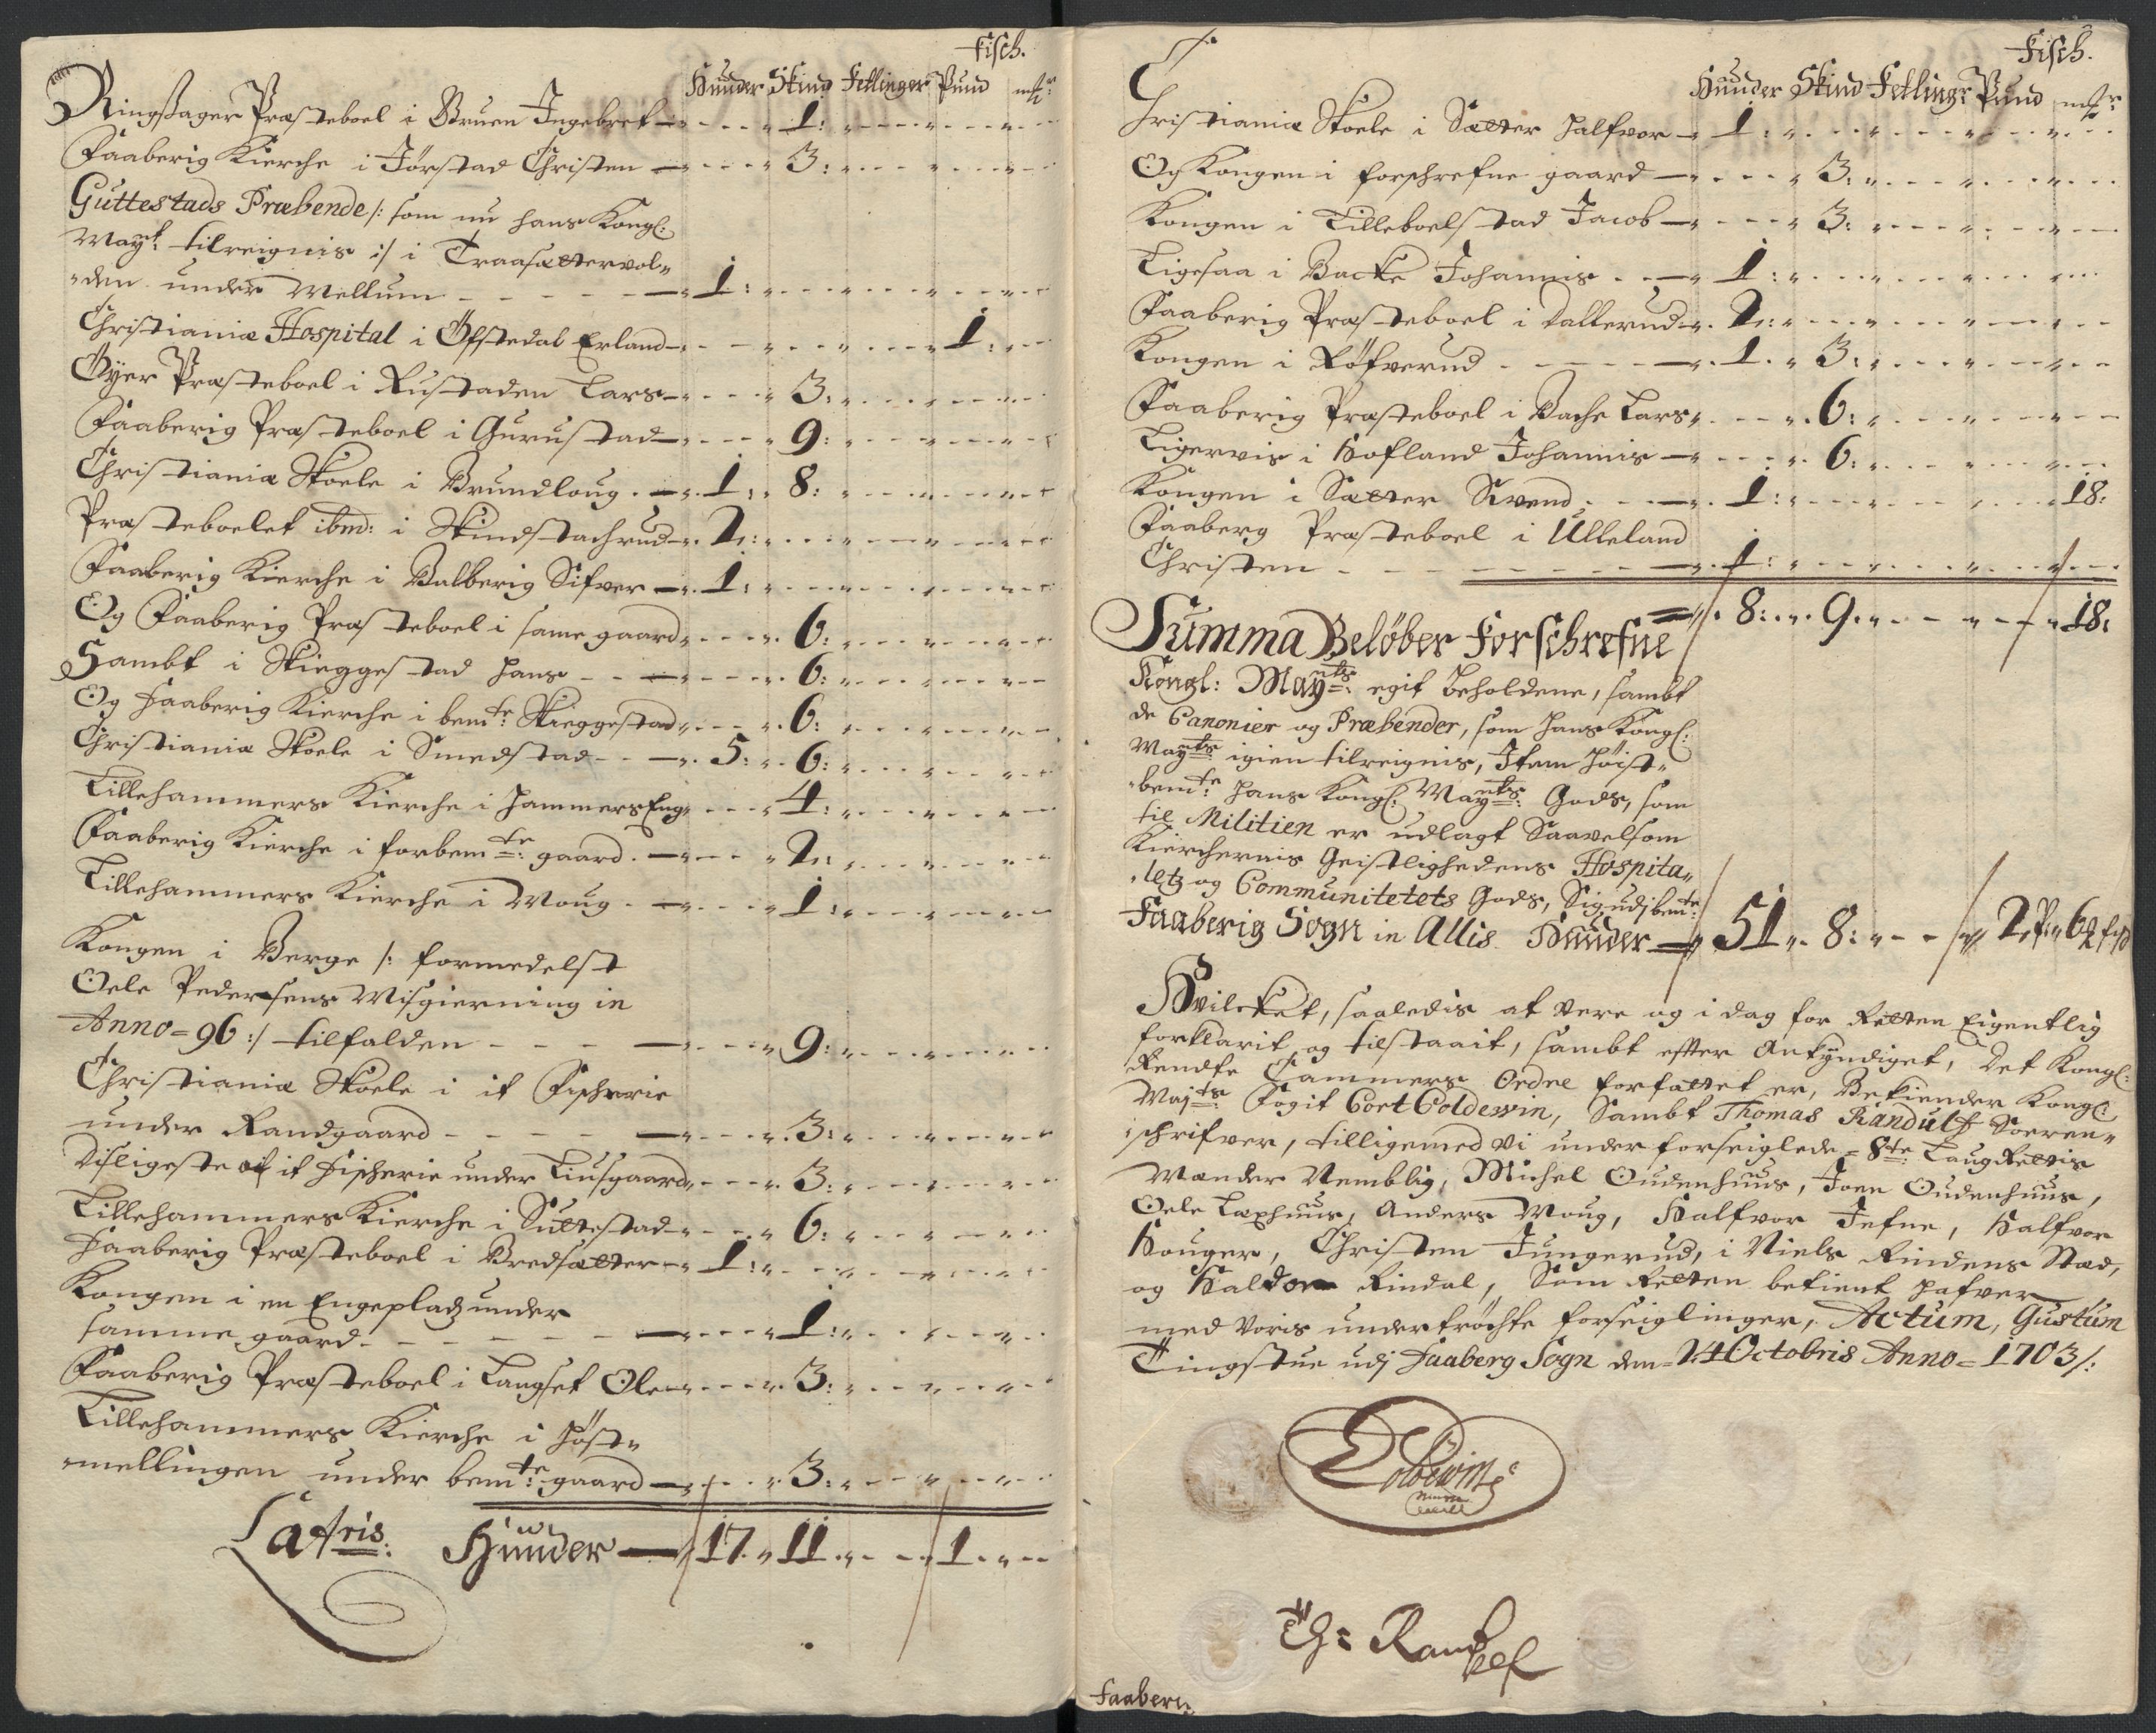 Fisch.
Hunder Skind Fetlinger Pund mkr
Ringsager Præsteboel i Bruen Ingebret — 1:
Faaberig Kierche i Jørstad Christen — 3:
Guttestads Præbende /: som nu hans Kongl:
Mayt. tilreignis :/ i Traasættervol„
„den under Mellum — 1:
Christianiæ Hospital i Öfstedal Erland — 1.
Öyer Præsteboel i Rustaden Lars — 3.
Faaberig Præsteboel i Gurustad — 9:
Christianiæ Skoele i Brundloug — 1: 8:
Præsteboelet ibm: i Skindstachrud — 2:
Faaberig Kierche i Balberig Sifver — 1:
Og Faaberig Præsteboel i same gaard — 6:
Sambt i Skieggestad Hans — 6:
Og Faaberig Kierche i bemte: Skieggestad — 6:
Christianiæ Skoele i Smedstad — 5: 6:
Lillehammers Kierche i HammersEng — 4:
Faaberig Kierche i forbemte: gaard — 2:
Lillehammers Kierche i Moug — 1:
Kongen i Berge /: formedelst
Oele Pedersens Misgierning in
Anno = 96 :/ tilfalden — 9:
Christianiæ Skoele i it Fischerie
under Randgaard — 3:
Disligeste i it Fischerie under Liusgaard — 3:
Lillehammers Kierche i Suttestad — 6:
Faaberig Præsteboel i Bredsætter — 1:
Kongen i en Engeplads under
samme gaard — 1:
Faaberig Præsteboel i Langset Ole — 3:
Lillehammers Kierche i Höst„
„mellingen under bemte: gaard — 3:
Latris: Hunder — 17. 11. 1.
Fisch.
Hunder Skind Fetlingr Pund mkr
Christianiæ Skoele i Sætter Halfvor — 1:
Og Kongen i forschrefne gaard — 3:
Kongen i Lilleboelstad Jacob — 3:
Ligesaa i Backe Johannis — 1:
Faaberig Præsteboel i Dallerud — 2:
Kongen i Röfverud — 1. 3:
Faaberig Præsteboel i Bache Lars — 6:
Ligervis i Hofland Johannis — 6:
Kongen i Sætter Svend — 1: 18:
Faaberg Præsteboel i Ulleland
Christen — 1:
8: 9. 18:
Summa Beløber Forschrefne
Kongl: Mayts: egit Beholdene, sambt
de Canonier og Præbender, som Hans Kongl:
Mayts igien tilreignis, Item Höist„
„bemte: Hans Kongl: Mayts: Gods, som
til Militien er udlagt Saavelsom
Kierchernis Geistlighedens Hospita„
„letz og Communitetets Gods, Sig udj bemte:
Faaberig Sogn in Allis Hunder — 51. 8: 2 P: 6
Hvilcket, saaledis at være og i dag for Retten Eigentlig
forklarit og tilstaait, sambt effter Ankyndiget, Det Kongl:
Rendte Cammers Ordre forfattet er, Bekiender Kongl:
Majts: Fogit Cort Coldewin, Sambt Thomas Randulf Soeren„
„schrifver, tilligemed vi under forseiglede = 8te: Laugrettis
Mænder Nemblig, Michel Oudenhuus, Joen Oudenhuus,
Oele Laxhuus, Anders Moug, Halfvor Jefne, Halfvor
Houger, Christen Jungerud, i Niels Rindens Stæd,
og Haldor Rindal, Som Retten betient Hafver
med voris undertröchte forseiglinger, Actum, Gustum
Tingstue udj Faaberg Sogn den = 24 Octobris Anno = 1703 /:
Coldewin
Th: Randulf
Faaberg